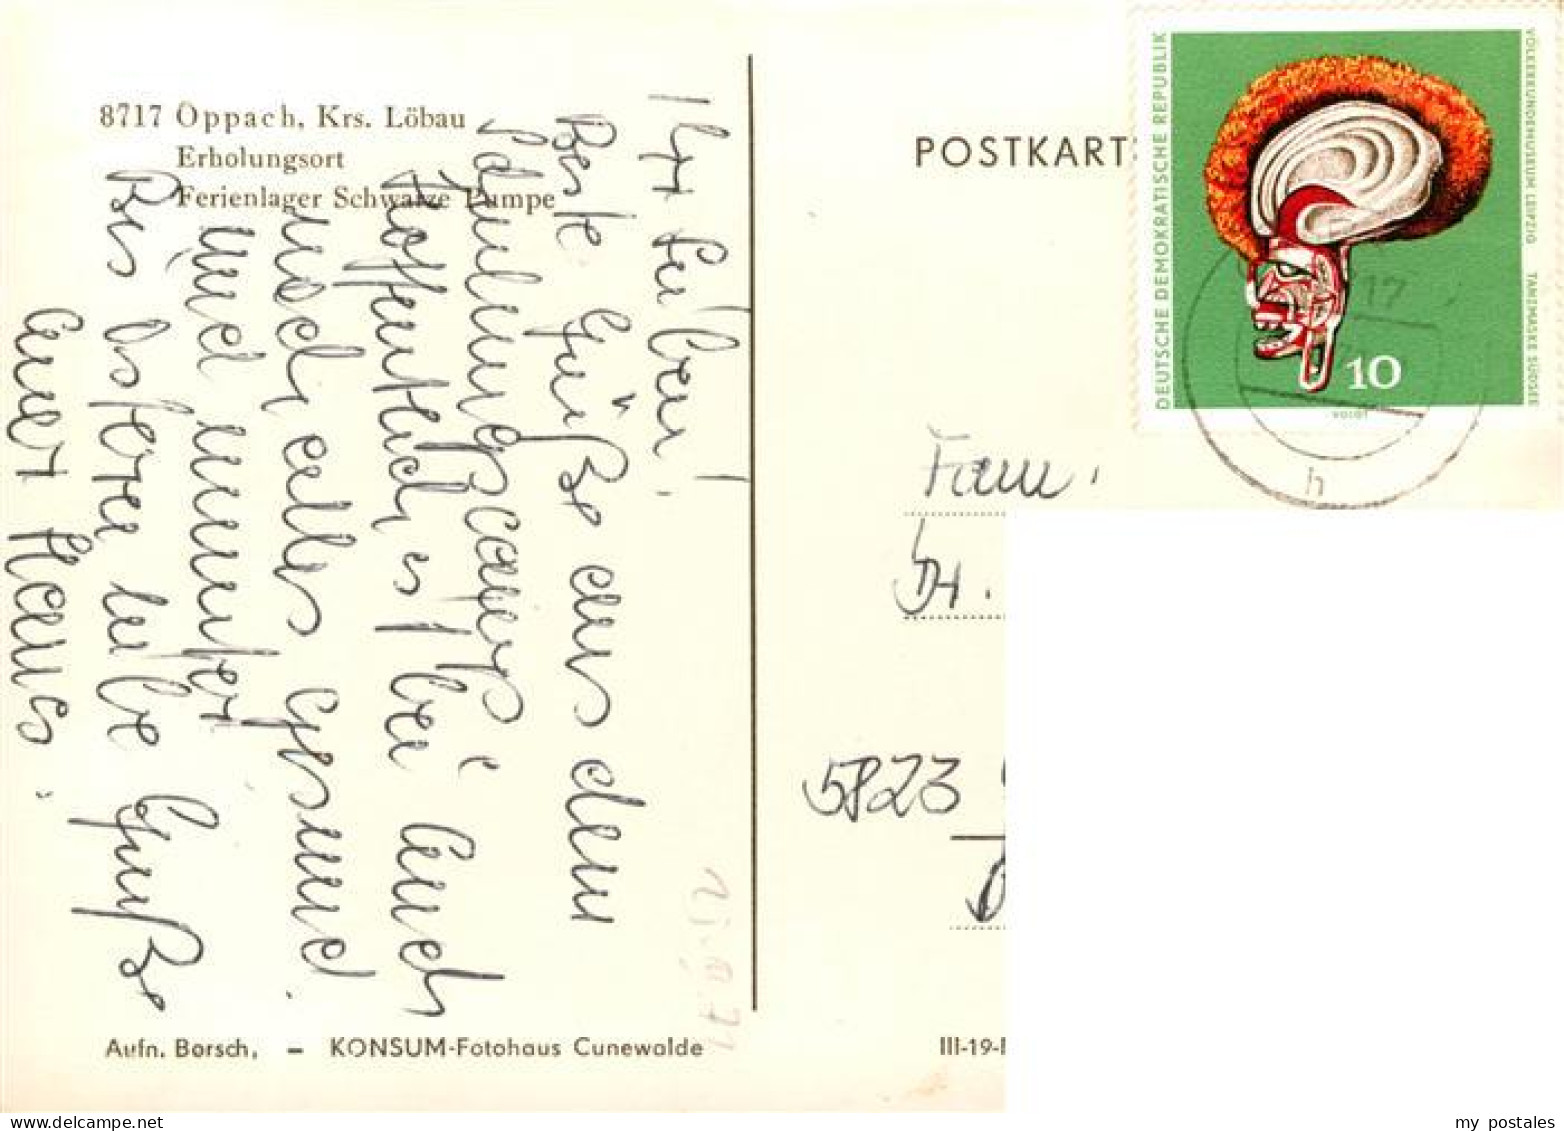 8717 Oppach, Krs. Löbau
Erholungsort
Ferienlager Schwarze Pumpe
Ihr Lieben!
Beste Grüße aus dem
Schulungslager
Hoffentlich ist bei Euch
noch alles gesund
und munter
Bis Ostern liebe Grüße
Euer
Aufn. Borsch, – KONSUM-Fotohaus Cunewalde
POSTKART
DEUTSCHE DEMOKRATISCHE REPUBLIK
VÖLKERKUNDEMUSEUM LEIPZIG TANZMASKE SÜDSEE
10
VOIGT
17
h
Fam.
5823
III-19-
my postales